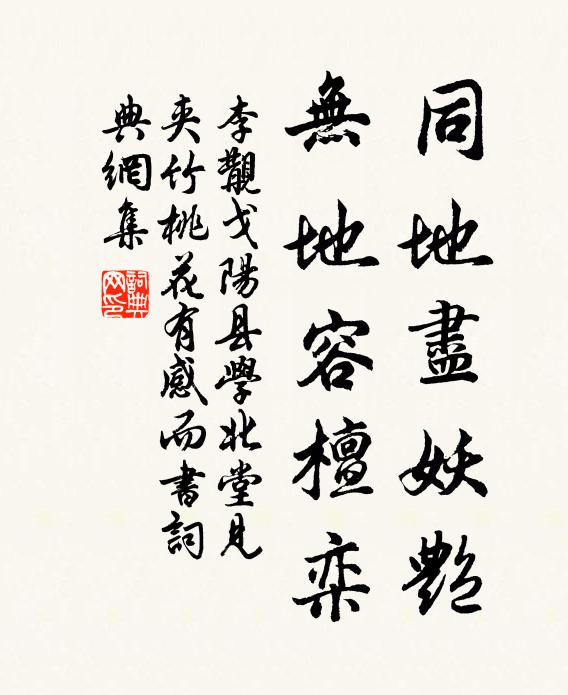 同地盡妖艷
無地容檀奕
李觀弋陽县學北堂見
夹竹桃花有感而書詞
典網集
詞典網印